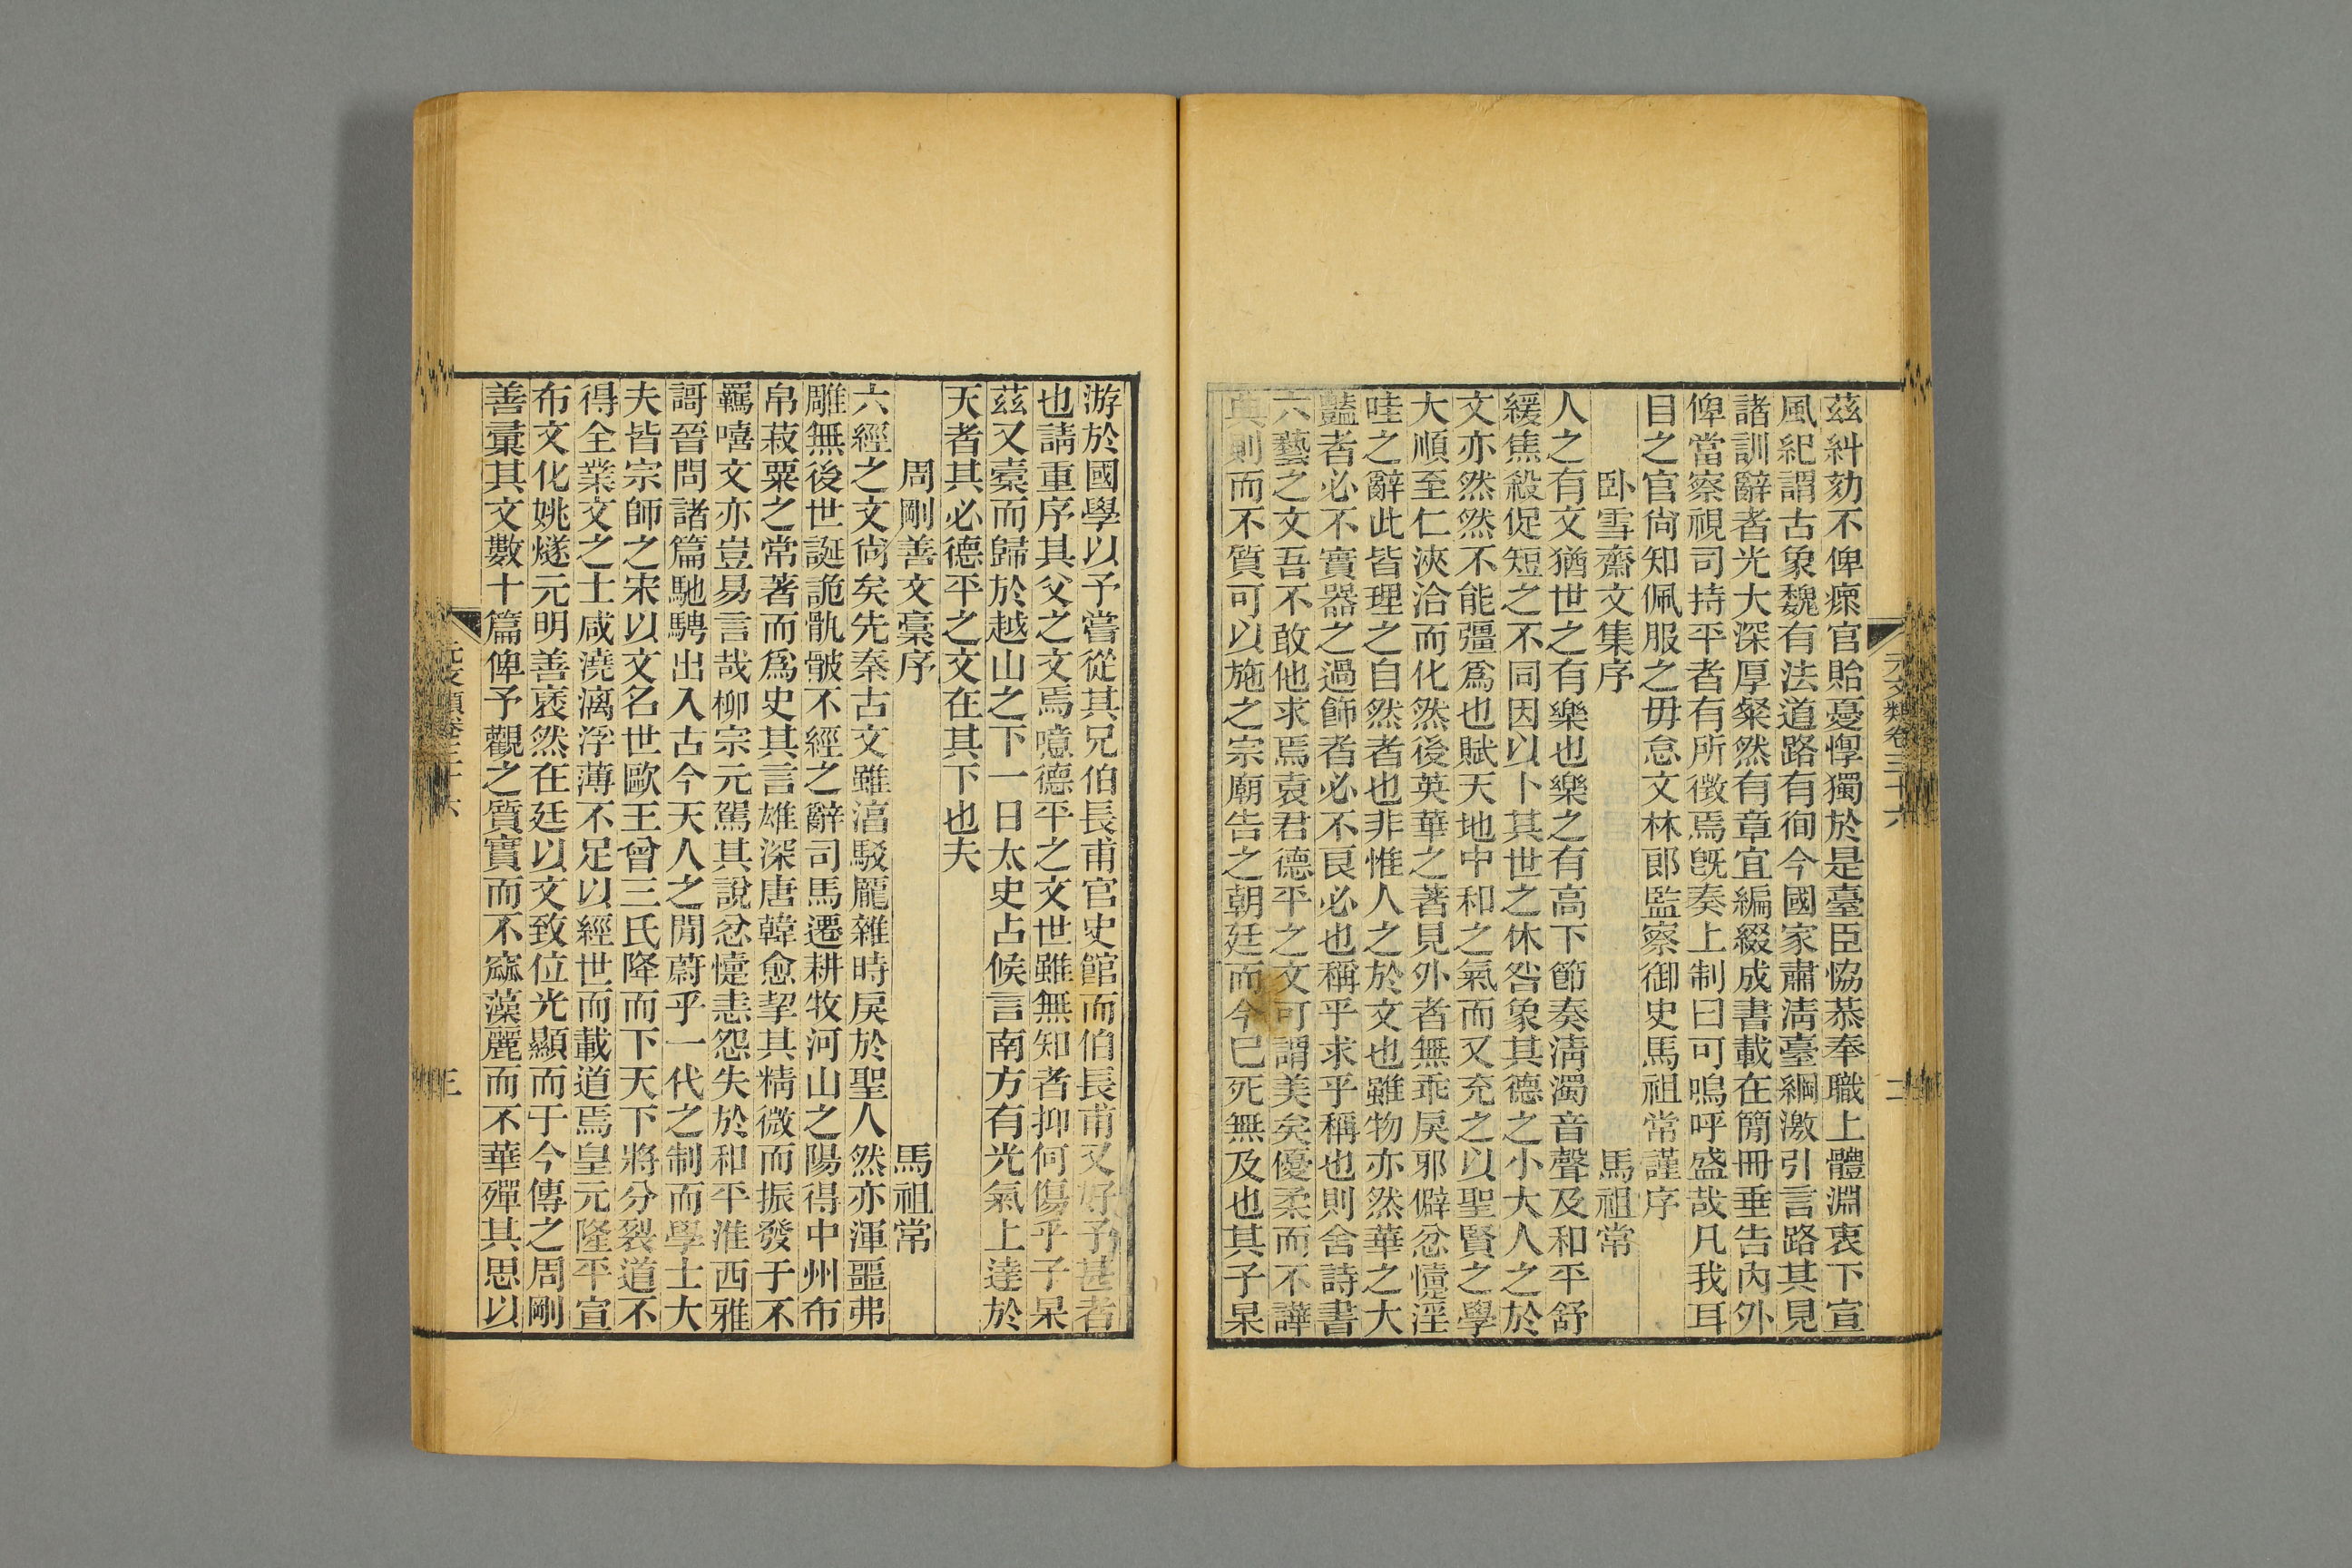 元文類卷三十六
二
茲糾劾不俾瘝官貽憂惸獨於是臺臣恊恭奉職上體淵衷下宣
風紀謂古象魏有法道路有徇今國家肅淸臺綱激引言路其見
諸訓辭者光大深厚粲然有章宜編綴成書載在簡冊垂告內外
俾當察視司持平者有所徵焉旣奏上制曰可嗚呼盛哉凡我耳
目之官尙知佩服之毋怠文林郎監察御史馬祖常謹序
卧雪齋文集序 馬祖常
人之有文猶世之有樂也樂之有高下節奏淸濁音聲及和平舒
緩焦殺促短之不同因以卜其世之休咎象其德之小大人之於
文亦然然不能彊爲也賦天地中和之氣而又充之以聖賢之學
大順至仁浹洽而化然後英華之著見外者無乖戾邪僻忿懥淫
哇之辭此皆理之自然者也非惟人之於文也雖物亦然華之大
豔者必不實器之過飾者必不良必也稱乎求乎稱也則舍詩書
六藝之文吾不敢他求焉袁君德平之文可謂美矣優柔而不譁
典則而不質可以施之宗廟告之朝廷而今已死無及也其子杲
游於國學以予嘗從其兄伯長甫官史館而伯長甫又好予甚者
也請重序其父之文焉噫德平之文世雖無知者抑何傷乎子杲
茲又橐而歸於越山之下一日太史占候言南方有光氣上達於
天者其必德平之文在其下也夫
周剛善文稾序 馬祖常
六經之文尙矣先秦古文雖湻駁龐雜時戾於聖人然亦渾噩弗
雕無後世誕詭骩骳不經之辭司馬遷耕牧河山之陽得中州布
帛菽粟之常著而爲史其言雄深唐韓愈挈其精微而振發于不
羈嘻文亦豈易言哉柳宗元駕其說忿懥恚怨失於和平淮西雅
謌晉問諸篇馳騁出入古今天人之閒蔚乎一代之制而學士大
夫皆宗師之宋以文名世歐王曾三氏降而下天下將分裂道不
得全業文之士咸澆漓浮薄不足以經世而載道焉皇元隆平宣
布文化姚燧元明善褎然在廷以文致位光顯而于今傳之周剛
善彚其文數十篇俾予觀之質實而不窳藻麗而不華殫其思以
元文類卷三十六
三